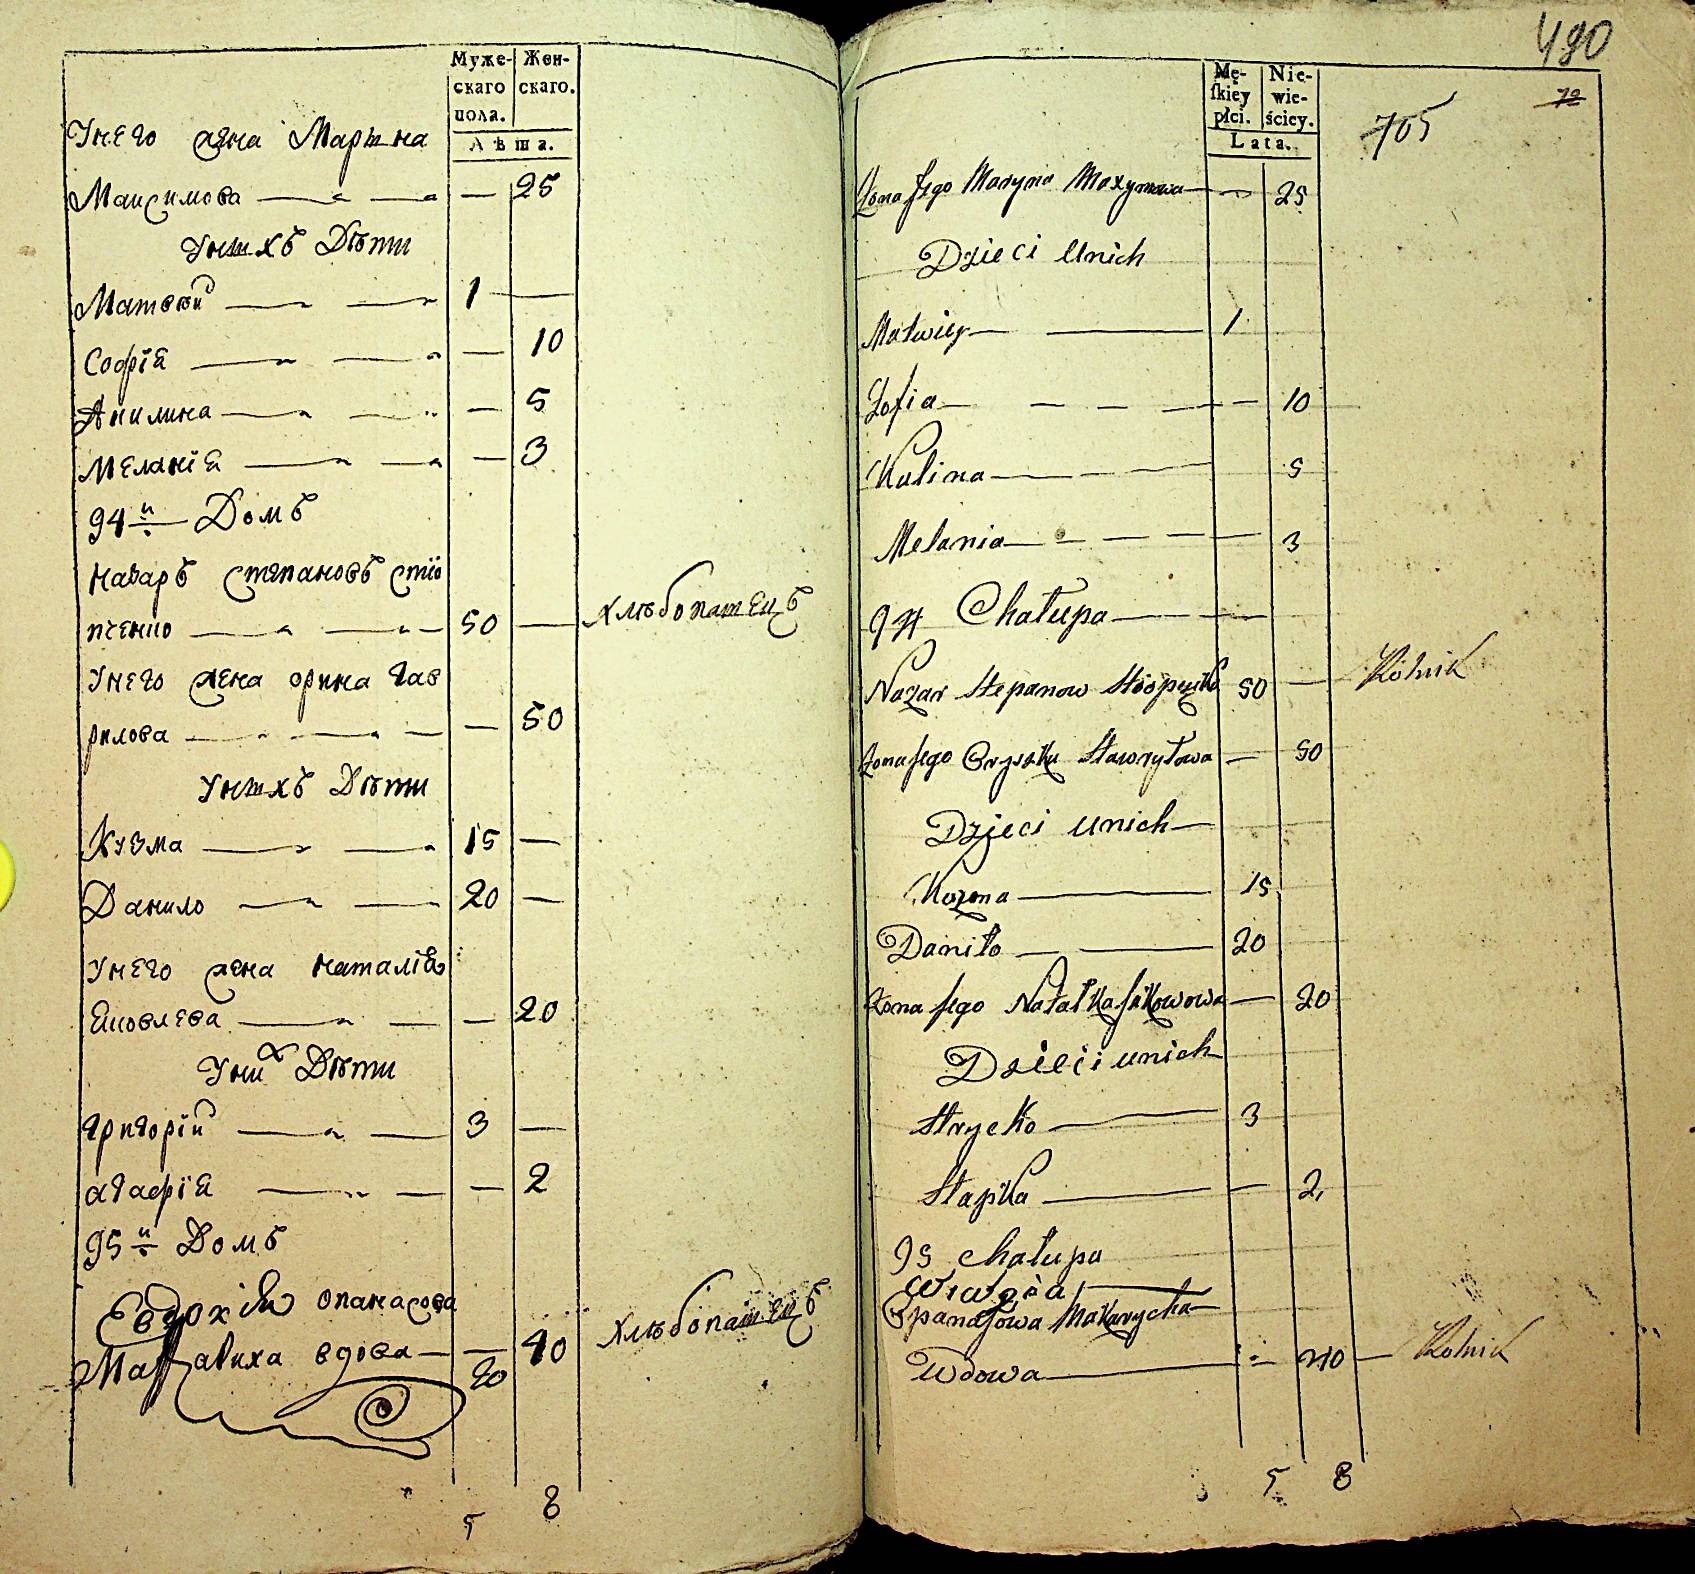 Муже-
скаго
пола.
Жен-
скаго.
Лѣта.
Унего жена Марина
Максимова — — — 25
Унихъ Дѣти
Матвѣй — — 1 —
Софія — — — 10
Акилина — — — 5
Меланія — — — 3
94й Домъ
Назаръ Степановъ Стіо
пченко — — 50 — хлѣбопашецъ
Унего жена Орина Гав
рилова — — — 50
Унихъ Дѣти
Кузма — — 15 —
Данило — — 20 —
Унего жена Наталія
Яковлева — — — 20
Уних Дѣти
Григорій — — 3 —
Агафія — — — 2
95й Домъ
Евдокія Опанасова
вдова — — 40 хлѣбопашецъ
20
5 8
490
72
705
Mę-
skiey
płci.
Nie-
wie-
ściey.
Lata.
Żona Jego Maryna Maxymowa — — 25
Dzieci Unich
Matwiey — — 1
Zofia — — — — — 10
Kulina — — 5
Melania — — — — — 3
94 Chałupa — —
Nazar Stepanow 50 — Rolnik
Żona Jego Hawryłowa — 50
Dzieci unich —
Kuzma — 15
Daniło — — 20
Żona Jego Natałka Jakowowa — 20
Dzieci unich
Hrycko — 3
Hapka — — 2
95 Chałupa
Opanasowa Makarycha
Wdowa — — 40 — Rolnik
5 8